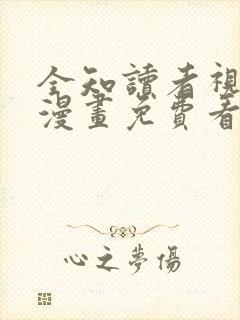 全知讀者視
漫畫免費看
心之夢傷